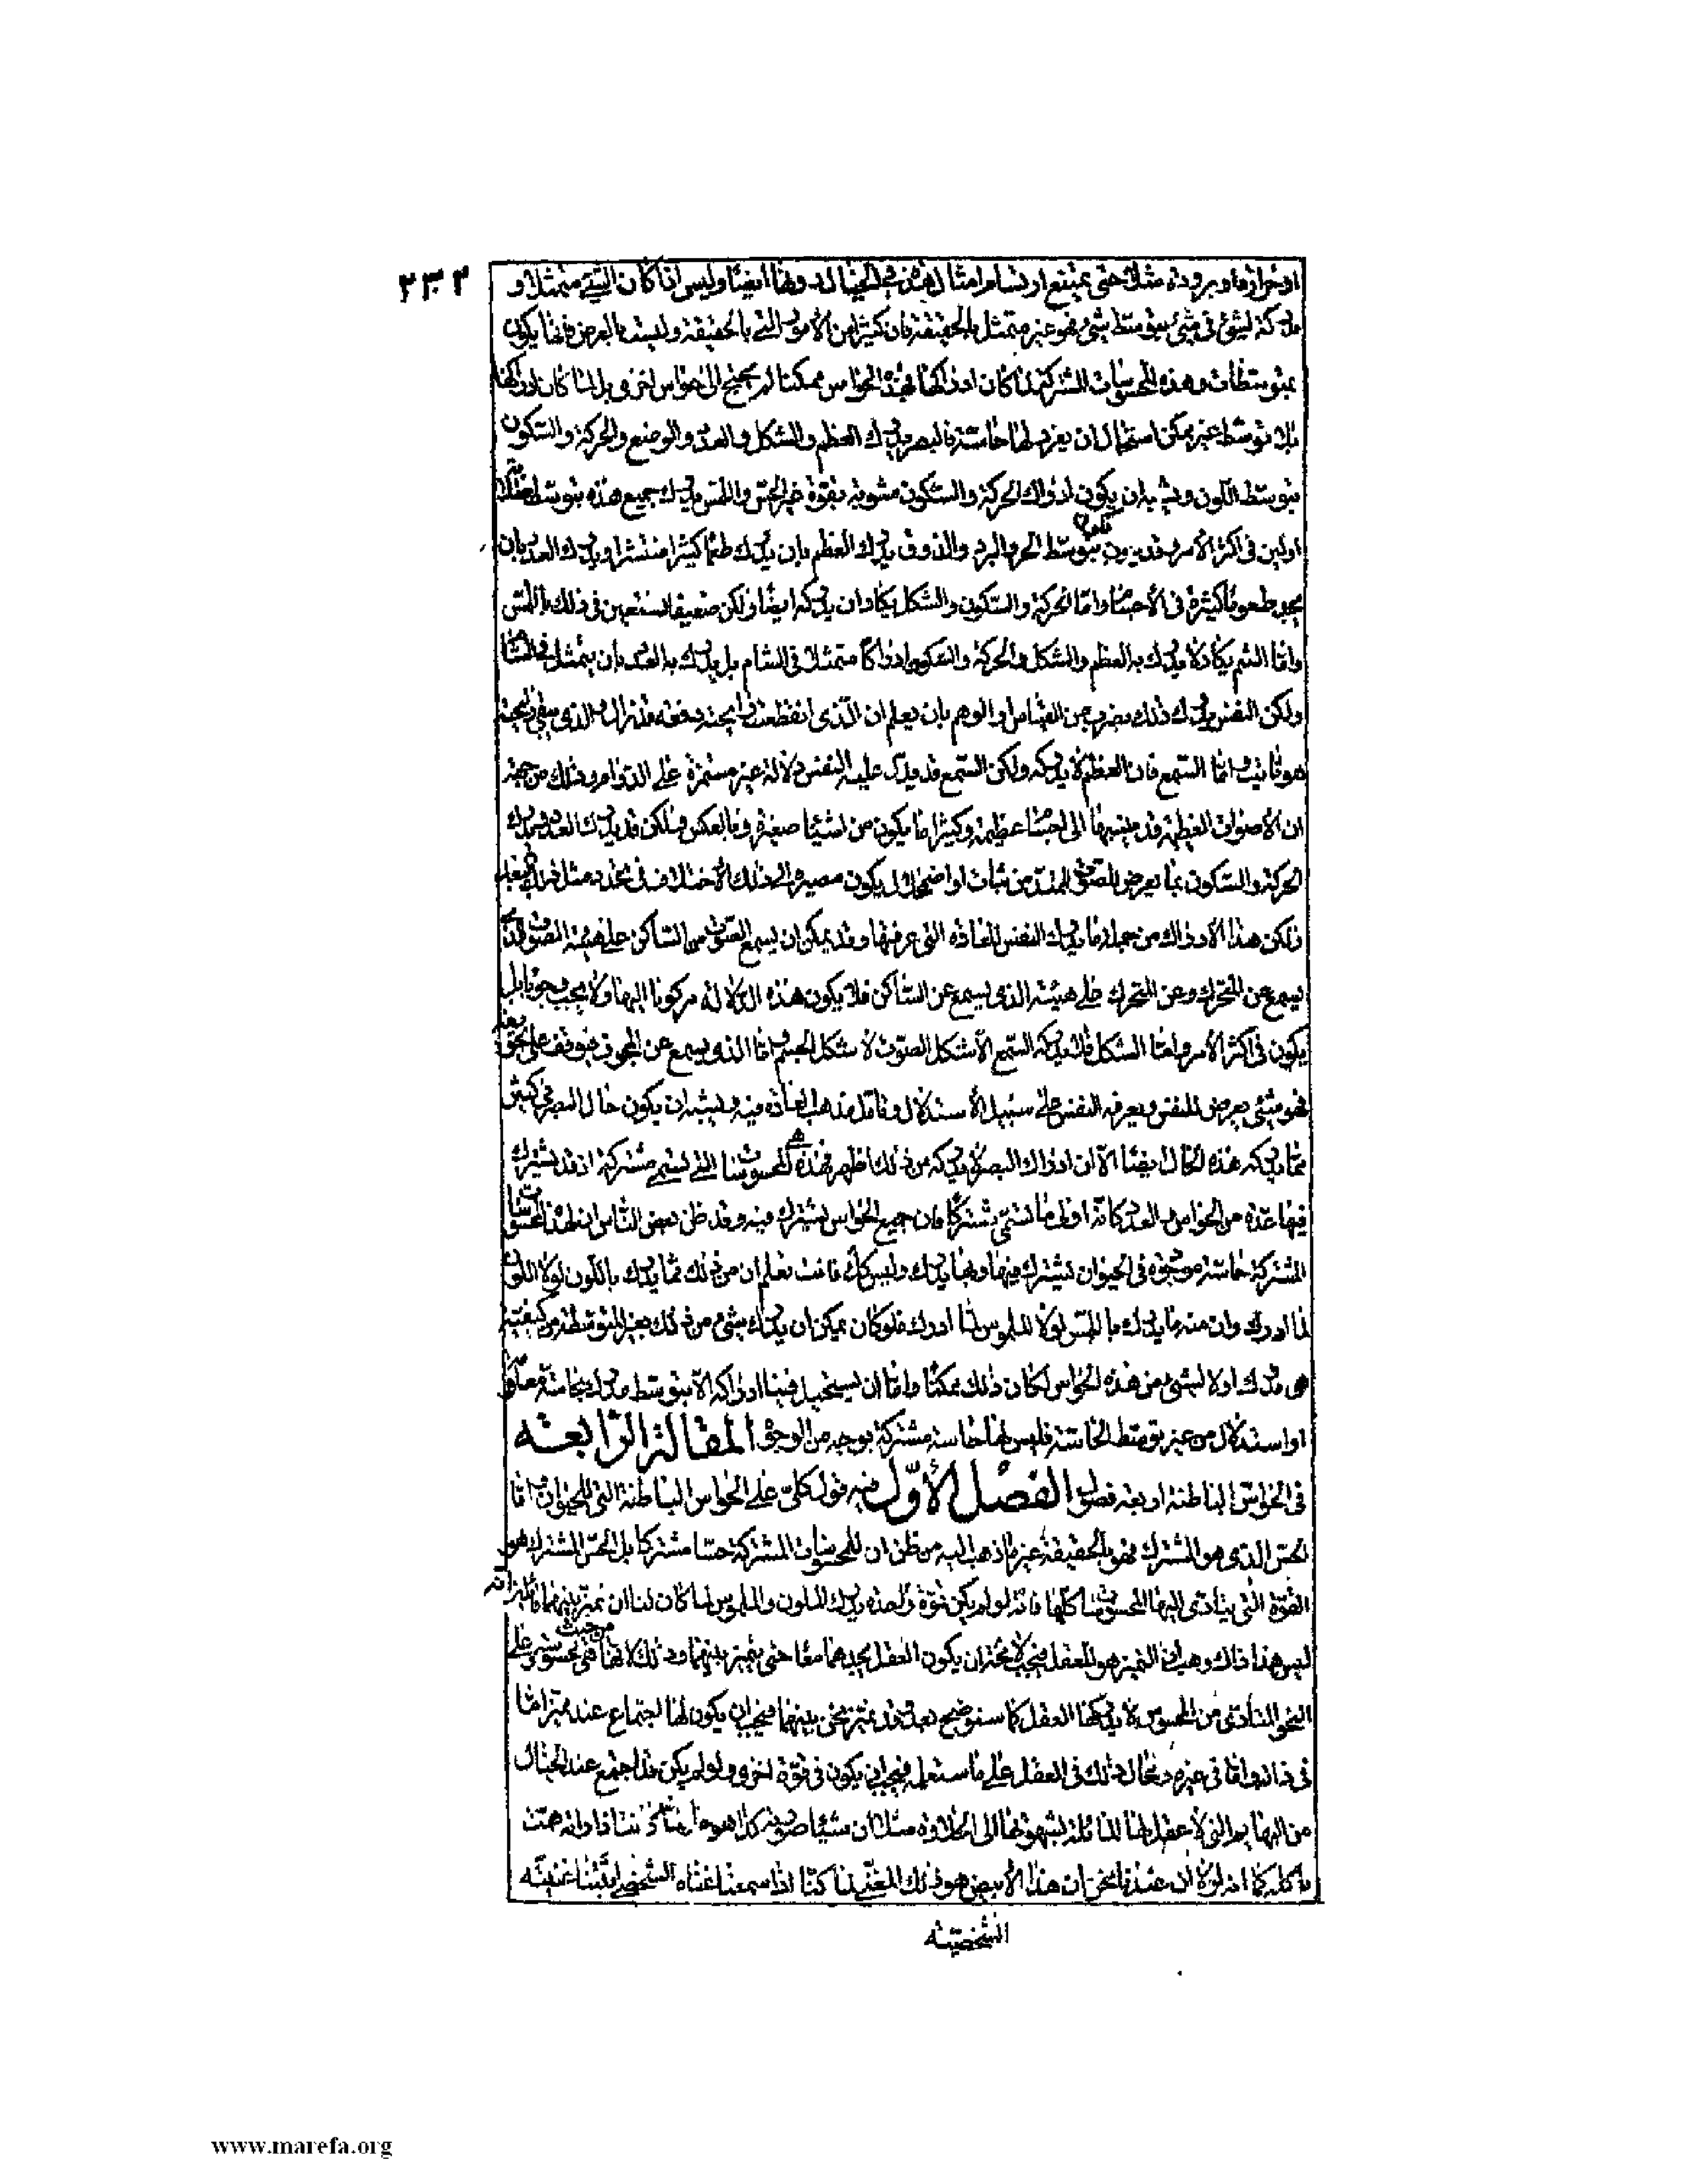 ٣٣٢
او حرارة او برودة مثلا حتى يمتنع ارتسام امثال هذه فى الخيال دونها ايضا وليس اذا كان الشئ متمثلا و
مدركة لشئ فى شئ بتوسط شئ فهو غير متمثل بالحقيقة فان كثيرا من الأمور التى بالحقيقة وليست بالعرض فانها يكون
بمتوسطات وهذه المحسوسات المشتركة لما كان ادراكها بهذه الحواس ممكنا لم يحتج الى حواس اخرى بل لما كان ادراكها
بلا توسط غير ممكن استحال ان يفرد لها حاسة فالبصر يدرك العظم والشكل والعدد والوضع والحركة والسكون
بتوسط اللون ويشبه ان يكون ادراك الحركة والسكون مشوبة بقوة غير الحس واللمس يدرك جميع هذه بتوسط صلابة
او لين فى اكثر الأمر وقد يكون بتوسط الحر والبرد والذوق يدرك العظم بان يدرك طعما كثيرا منتشرا ويدرك العدد بان
يجد طعوما كثيرة فى الأجسام واما الحركة والسكون والشكل يكاد ان يدركه ايضا ولكن ضعيفا يستعين فى ذلك باللمس
واما الشم يكاد لا يدرك به العظم والشكل والحركة والسكون ادراكا متمثلا فى الشام بل يدرك به العدد بان يتمثل فى الشام
ولكن النفس يدرك ذلك بضرب من القياس او الوهم بان يعلم ان الذى انقطعت رايحته دفعة قد زال والذى يبقى رايحته
هو ثابت واما السمع فان العظم لا يدركه ولكن السمع قد يدل عليه النفس دلالة غير مستمرة على الدوام وذلك من جهة
ان الأصوات العظيمة قد ينسبها الى اجسام عظيمة وكثيرا ما يكون من اشياء صغيرة وبالعكس ولكن قد يدرك العدد ويدرك
الحركة والسكون بما يعرض للصوت الممتد من ثبات او اضمحلال يكون مصيره الى ذلك الاختلاف فى تحدد مثل
ولكن هذا الأدراك من جملة ما يدرك النفس للعادة التى عرفتها وقد يمكن ان يسمع الصوت من الساكن على هيئة الصوت الذى
يسمع عن المتحرك وعن المتحرك على هيئة الذى يسمع عن الساكن فلا يكون هذه الدلالة مركونا اليها ولا يجب وجوبا بل
يكون فى اكثر الأمر واما الشكل فلا يدركه السمع الا شكل الصوت لا شكل الجسم واما الذى يسمع عن المجوف فيوقف على تجويفه
فهو شئ يعرض للنفس ويعرفه النفس على سبيل الأستدلال وتأمل مذهب العادة فيه ويشبه ان يكون حال البصر فى كثير
مما يدركه هذه الحال ايضا الا ان ادراك البصر لا يدركه من ذلك اظهر فهذه هى المحسوسات التى تسمى مشتركة اذ قد يشترك
فيها عدة من الحواس والعدد كانه اولى ما يسمى مشتركا فان جميع الحواس يشترك فيه وقد ظن بعض الناس ان لهذه المحسوسات
المشتركة حاسة موجودة فى الحيوان يشترك فيها وبها يدرك وليس كك فانت تعلم ان من ذلك مما يدرك باللون لولا اللون
لما ادرك وان منه ما يدرك باللمس لولا الملموس لما ادرك فلو كان يمكن ان يدرك شئ من ذلك بغير المتوسط من كيفية
هى مدرك اولا لشئ من هذه الحواس لكان ذلك ممكنا واما ان يستحيل فينا ادراكه الا بتوسط مدرك بحاسة معلومة
او استدلال من غير توسط الحاسة فليس لها حاسة مشتركة بوجه من الوجوه المقالة الرابعة
فى الحواس الباطنة اربعة فصول الفصل الأول فيه قول كلى على الحواس الباطنة التى للحيوان اما
الحس الذى هو المشترك فهو بالحقيقة غير ما ذهب اليه من ظن ان للمحسوسات المشتركة حسا مشتركا بل الحس المشترك هو
القوة التى يتادى اليها المحسوسات كلها فانه لو لم يكن قوة واحدة يدرك الملون والملموس لما كان لنا ان نميز بينهما قائلين انه
ليس هذا ذاك وهب ان التميز هو للعقل فيجب لا محة ان يكون العقل يجدهما معا حتى يتميز بينهما وذلك لانها من حيث هى محسوسة وعلى
النحو المتادى من المحسوس لا يدركها العقل كما سنوضح بعد وقد نميز نحن بينهما فيجب ان يكون لها اجتماع عند مميز اما
فى ذاته واما فى غيره ومحال ذلك فى العقل على ما ستعلمه فيجب ان يكون فى قوة اخرى ولو لم يكن قد اجتمع عند الخيال
من البهايم التى لا عقل لها المائلة بشهوتها الى الحلاوة مثلا ان شيئا صورته كذا هو حلو لما كانت اذا راته همت
باكله كما انه لولا ان عندنا نحن ان هذا الأبيض هو ذلك المغنى لما كنا اذا سمعنا غناه الشخصى اثبتنا عينيته
الشخصية
www.marefa.org